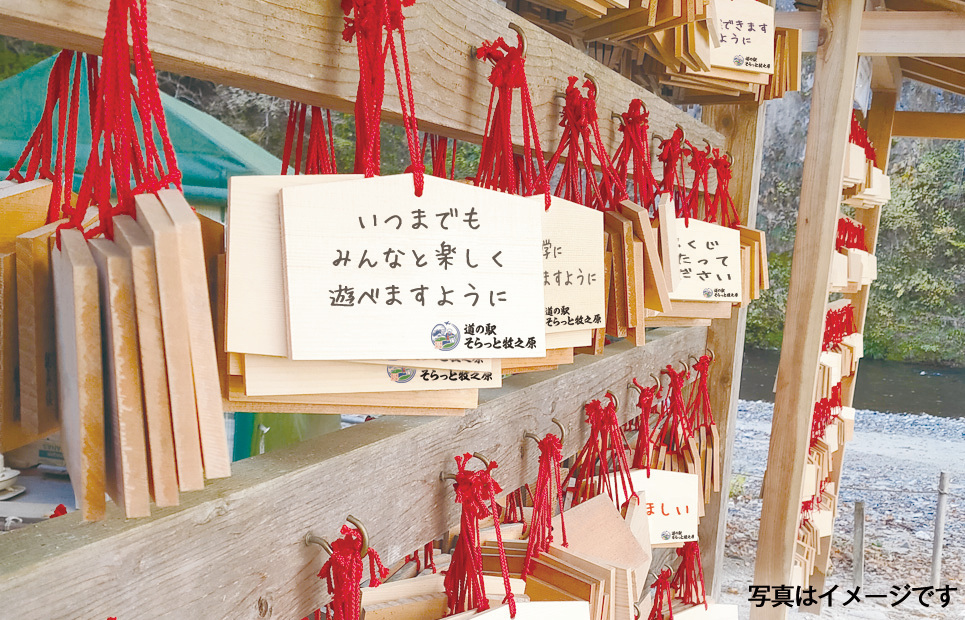 できます
ように
いつまでも
みんなと楽しく
遊べますように
道の駅
そらっと牧之原
そらっと牧之原
学に
ますように
道の駅
そらっと牧之原
くじ
たって
ださい
道の駅
そらっと牧之原
ほしい
道の駅
そらっと牧之原
写真はイメージです